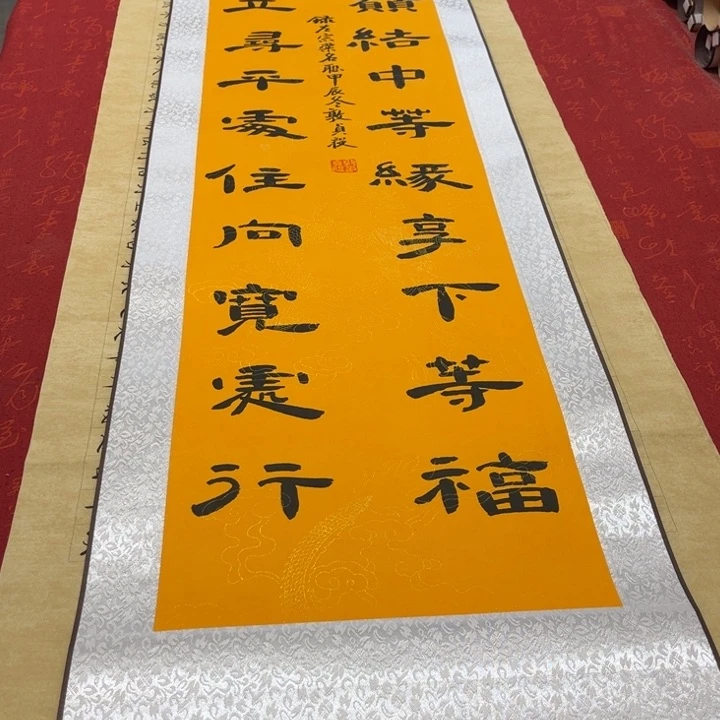 願結中等緣享下等福
錄左宗棠名聯甲辰冬敦貞
立尋平處住向寬處行